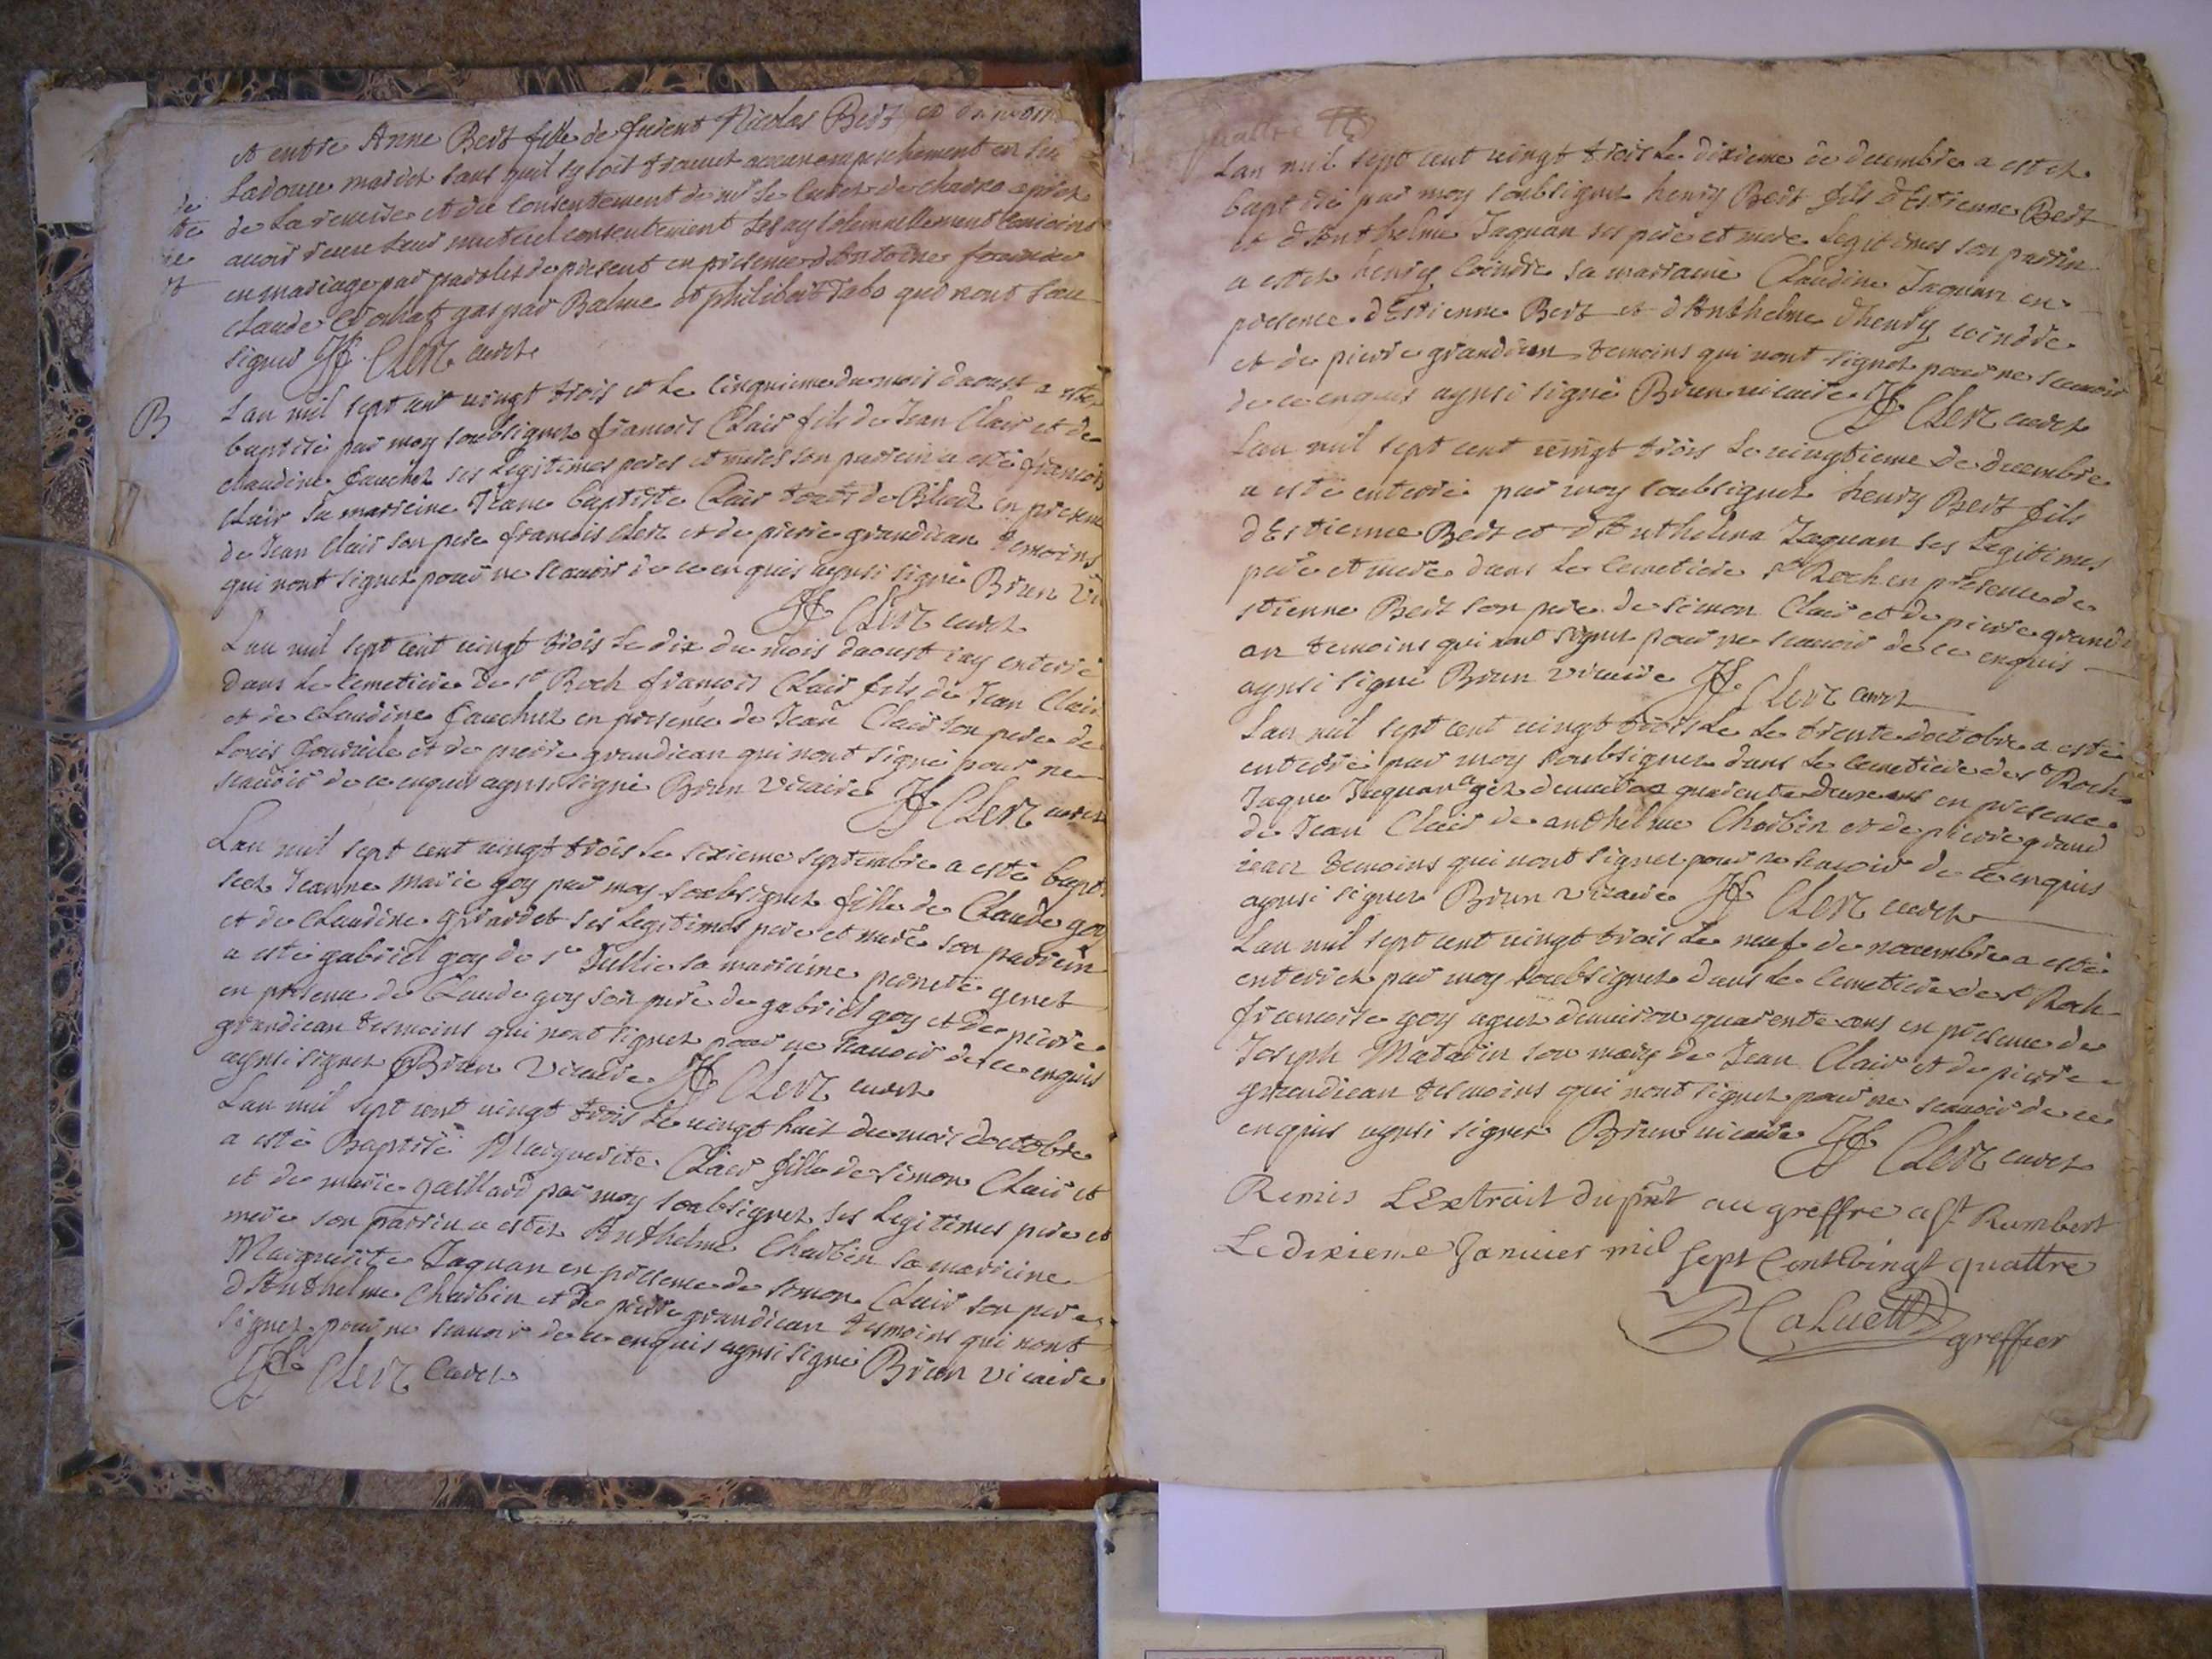 et entre Anne Bert fille de furent Nicolas Bert et
Ladouce mariet sans quil sy soit trouvet aucun empeschement en foy
de La remise et du Consentement de mr le Curet de apres
avoir receu leur mutuel consentement Les ay solemnellement conioins
en mariage par paroles de present en presence d'Antoine
Claude gaspar Balme et philibert Tabo qui nont sceu
signer Clerc curet
B
Lan mil sept cent vingt trois et le Cinquieme du mois daoust a estez
baptisé par moy soubsignez francois Clair fils de Jean Clair et de
claudine fauchet ses Legitimes peres et meres son parrein a esté francois
Clair sa marreine Jeane baptiste Clair touts de en presence
de Jean Clair son pere francois Clerc et de pierre grandiean temoins
qui nont signez pour ne scavoir de ce enquis aynsi signé Brun Vi
Clerc curet
Lan mil sept cent vingt trois le dix du mois daoust iay enterré
dans Le Cemetiere de st Roch francois Clair fils de Jean Clair
et de claudine fauchet en presence de Jean Clair son pere de
Louis et de pierre grandiean qui nont signé pour ne
scavoir de ce enquis aynsi signé Brun Vicaire Clerc curet
Lan mil sept cent vingt trois le sixieme septembre a esté bapti
seez Jeanne marie goy par moy soubsignez fille de Claude goy
et de claudine girardet ses Legitimes pere et mere son parrein
a esté gabriel goy de st Jullie sa marraine pernete genet
en presence de Claude goy son pere de gabriel goy et de pierre
grandiean tesmoins qui nont signez pour ne scavoir de ce enquis
aynsi signez Brun Vicaire Clerc curet
Lan mil sept cent vingt trois le vingt huit du mois doctobre
a esté Baptisé Marguerite Clair fille de simon Clair et
et de marie gaillard par moy soubsignez ses Legitimes pere et
mere son parrin a estez Anthelme Charbin sa marreine
Marguerite Jaquan en presence de simon Clair son pere
d'Anthelme Charbin et de pierre grandiean tesmoins qui nont
signez pour ne scavoir de ce enquis aynsi signé Brun vicaire
Clerc Curet
quattre
Lan mil sept cent vingt trois Le dixieme de decembre a estez
baptisé par moy soubsignez henry Bert fils d'Estienne Bert
et d'Anthelme Jaquan ses pere et mere Legitimes son parrin
a estez henry Coindre sa marraine Claudine Jaquan en
presence d'Estienne Bert et d'Anthelme d'henry coindre
et de pierre grandiean temoins qui nont signez pour ne scavoir
de ce enquis aynsi signé Brun vicaire Clerc curet
Lan mil sept cent vingt trois Le vingtieme de decembre
a esté enterré par moy soubsignez henry Bert fils
d'Estienne Bert et d'Anthelma Jaquan ses Legitimes
pere et mere dans Le Cemetiere st Roch en presence de
stienne Bert son pere de simon Clair et de pierre grandi
an temoins qui nont signez pour ne scavoir de ce enquis
aynsi signé Brun Vicaire Clerc curet
Lan mil sept cent vingt trois Le Le trente doctobre a esté
enterré par moy soubsignez dans Le Cemetiere de st Roch
Jaque Jaquan agéz denviron quarente deux ans en presence
de Jean Clair de anthelme Charbin et de pierre grand
iean temoins qui nont signez pour ne scavoir de ce enquis
aynsi signez Brun Vicaire Clerc curet
Lan mil sept cent vingt trois Le neuf de novembre a esté
enterrez par moy soubsignez dans Le Cemetiere de st Roch
francoise goy agez denviron quarente ans en presence de
Joseph Matarin son mary de Jean Clair et de pierre
grandiean tesmoins qui nont signez pour ne scavoir de ce
enquis aynsi signez Brun vicaire Clerc curet
Remis L'Extrait du pnt au greffre a st Rambert
Le dixieme Janvier mil Sept Cent Vingt quattre
greffier